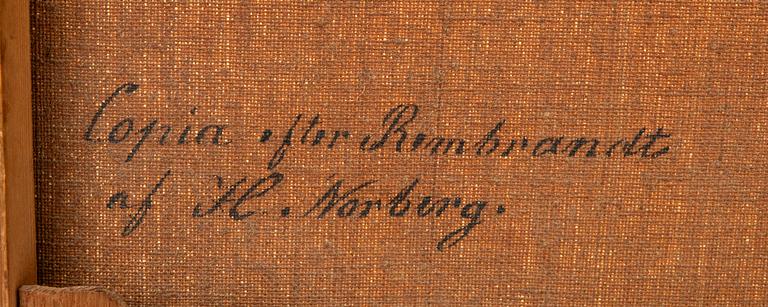 Copia efter Rembrandt
af H. Norberg.